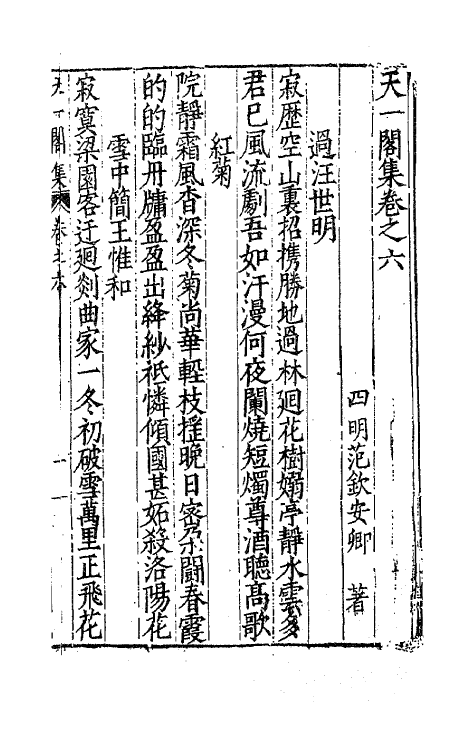 天一閣集卷之六
四明范欽安卿 著
過汪世明
寂歴空山裏招携勝地過林廻花樹嫋亭靜水雲多
君已風流劇吾如汗漫何夜闌燒短燭尊酒聽高歌
紅菊
院靜霜風杳深冬菊尚華輕枝揺晚日密朶鬬春霞
的的臨丹牖盈盈出絳紗祗憐傾國甚妬殺洛陽花
雪中簡王惟和
寂寞梁園客迂廻剡曲家一冬初破雪萬里正飛花
天一閣集 卷之六 一